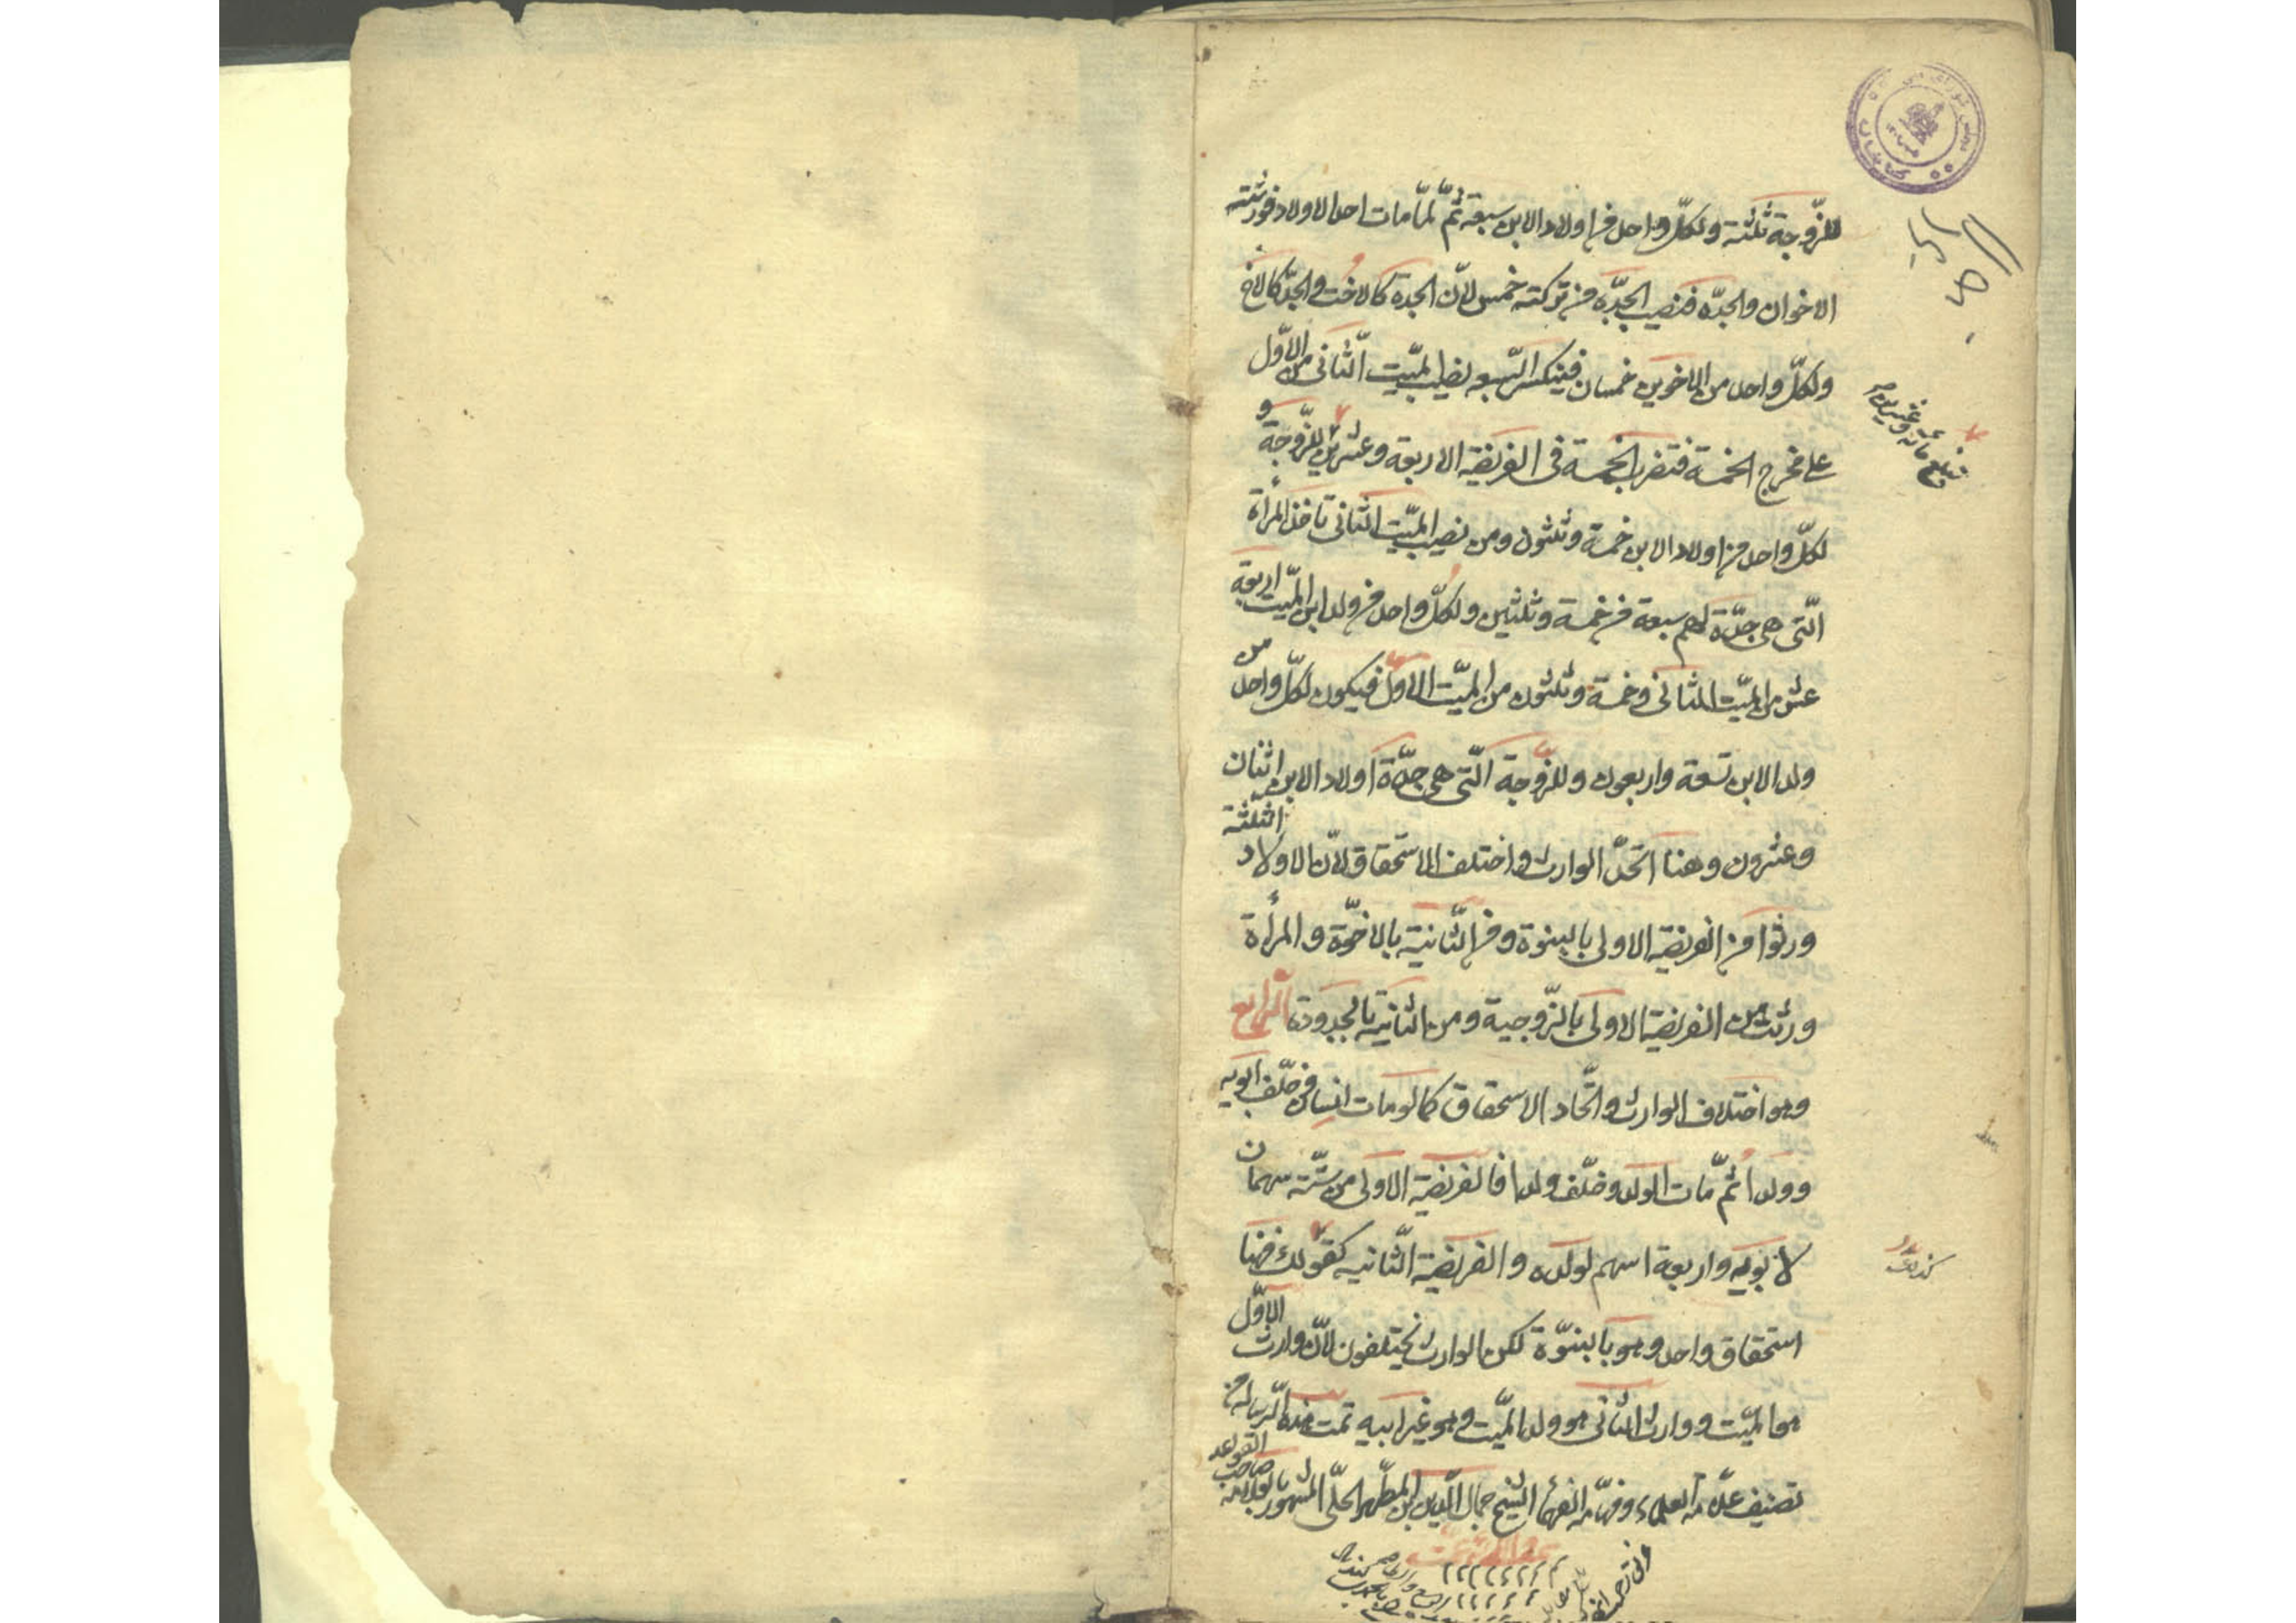 للزّوجة ثلثة ولكلّ واحد من اولاد الابن سبعة ثمّ لمّا مات احد الاولاد فورثته
الاخوان والجدّة فنصيب الجدّة من تركته خمس لانّ الجدة كالاخت والجدّ كالاخ
ولكلّ واحد من الاخوين خمسان فينكسر السّبعه نصيب الميّت الثّانى من الاوّل
على مخرج الخمسة فتضرب الخمسة فى الفريضة الاربعة وعشرين للزّوجة
فتبلغ مائة وعشرين
لكلّ واحد من اولاد الابن خمسة وثلثون ومن نصيب الميّت الثّانى تاخذ المرأة
الّتى هى جدّة لهم سبعة من خمسة وثلثين ولكلّ واحد من ولد ابن الميّت اربعة
عشر من الميّت الثانى وخمسة وثلثون من الميّت الاوّل فيكون لكلّ واحد من
ولد الابن تسعة واربعون وللزّوجة الّتى هى جدّة اولاد الابن اثنان
وعشرون وهنا اتّحد الوارث واختلف الاستحقاق لانّ الاولاد الثلثة
ورثوا من الفريضة الاولى بالبنوة ومن الثّانية بالاخوّة والمرأة
ورثت من الفريضة الاولى بالزّوجية ومن الثّانية بالجدودة الرّابع
وهو اختلاف الوارث واتّحاد الاستحقاق كما لو مات انسان وخلّف ابويه
وولدا ثمّ مات الولد وخلّف ولدا فالفريضة الاولى من ستّة سهمان
لابويه واربعة اسهم لولده والفريضة الثّانيه كقولك فهنا
استحقاق واحد وهو بالبنوّة لكن الوارث يختلفون لانّ وارث الاوّل
هو الميّت ووارث الثانى هو ولد الميّت وهو غير ابيه تمت هذه الرّسالة من
تصنيف علّامة العلماء وفهّامة الفقهاء الشيخ جمال الدّين ابن المطهّر الحلّى المشهور بالعلامة صاحب القواعد